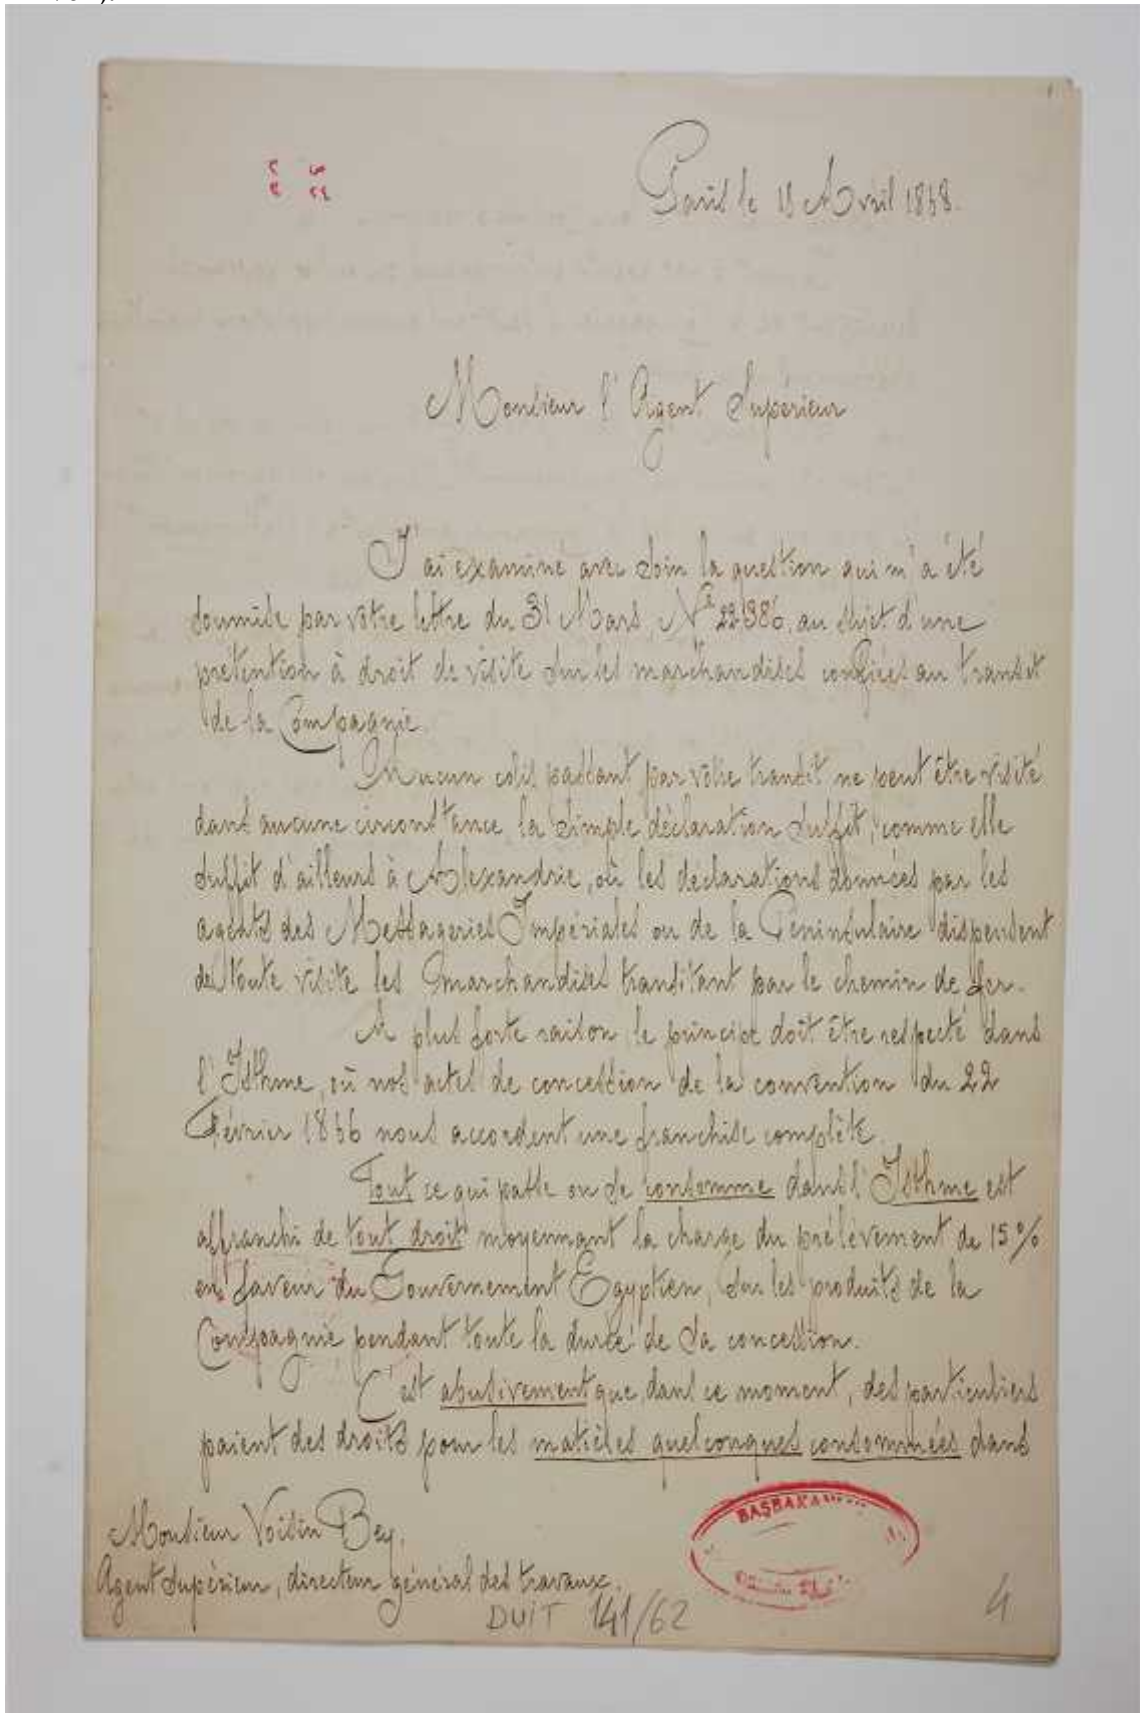 Paris le 18 Avril 1868.
Monsieur l'Agent Superieur
J'ai examiné avec soin la question qui m'a été
soumise par votre lettre du 31 Mars, au sujet d'une
prétention à droit de visite sur les marchandises confiées au transit
de la Compagnie.
Aucun colis passant par votre transit ne peut être visité
dans aucune circonstance, la simple déclaration suffit, comme elle
suffit d'ailleurs à Alexandrie, où les déclarations données par les
agents des Messageries Impériales ou de la Péninsulaire dispensent
de toute visite les marchandises transitant par le chemin de fer.
A plus forte raison, le principe doit être respecté dans
l'Isthme, où nos actes de concession de la convention du 22
Février 1866 nous accordent une franchise complète.
Tout ce qui passe ou se consomme dans l'Isthme est
affranchi de tout droit moyennant la charge du prélèvement de 15 %
en faveur du Gouvernement Egyptien, sur les produits de la
Compagnie pendant toute la durée de sa concession.
C'est abusivement que, dans ce moment, des particuliers
paient des droits pour les matières quelconques consommées dans
Monsieur Voisin Bey,
Agent Supérieur, directeur général des travaux.
DUIT 141/62
4